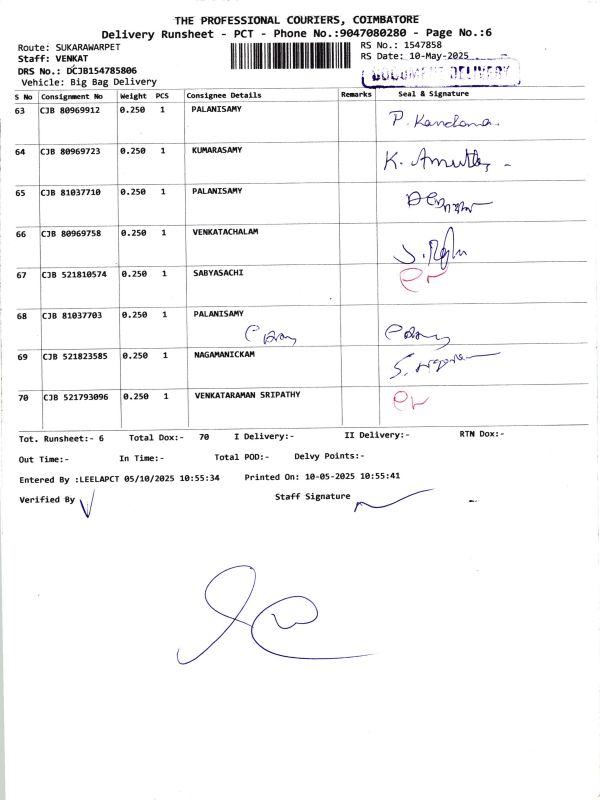 THE PROFESSIONAL COURIERS, COIMBATORE
Delivery Runsheet - PCT - Phone No.:9047080280 - Page No.:6
Route: SUKARAWARPET RS No.: 1547858
Staff: VENKAT RS Date: 10-May-2025
DRS No.: DCJB154785806 DOCUMENT DELIVERY
Vehicle: Big Bag Delivery
S No Consignment No Weight PCS Consignee Details Remarks Seal & Signature
63 CJB 80969912 0.250 1 PALANISAMY P. Kandana
64 CJB 80969723 0.250 1 KUMARASAMY K. Amutha
65 CJB 81037710 0.250 1 PALANISAMY
66 CJB 80969758 0.250 1 VENKATACHALAM
67 CJB 521810574 0.250 1 SABYASACHI
68 CJB 81037703 0.250 1 PALANISAMY
69 CJB 521823585 0.250 1 NAGAMANICKAM
70 CJB 521793096 0.250 1 VENKATARAMAN SRIPATHY
Tot. Runsheet:- 6 Total Dox:- 70 I Delivery:- II Delivery:- RTN Dox:-
Out Time:- In Time:- Total POD:- Delvy Points:-
Entered By :LEELAPCT 05/10/2025 10:55:34 Printed On: 10-05-2025 10:55:41
Verified By Staff Signature